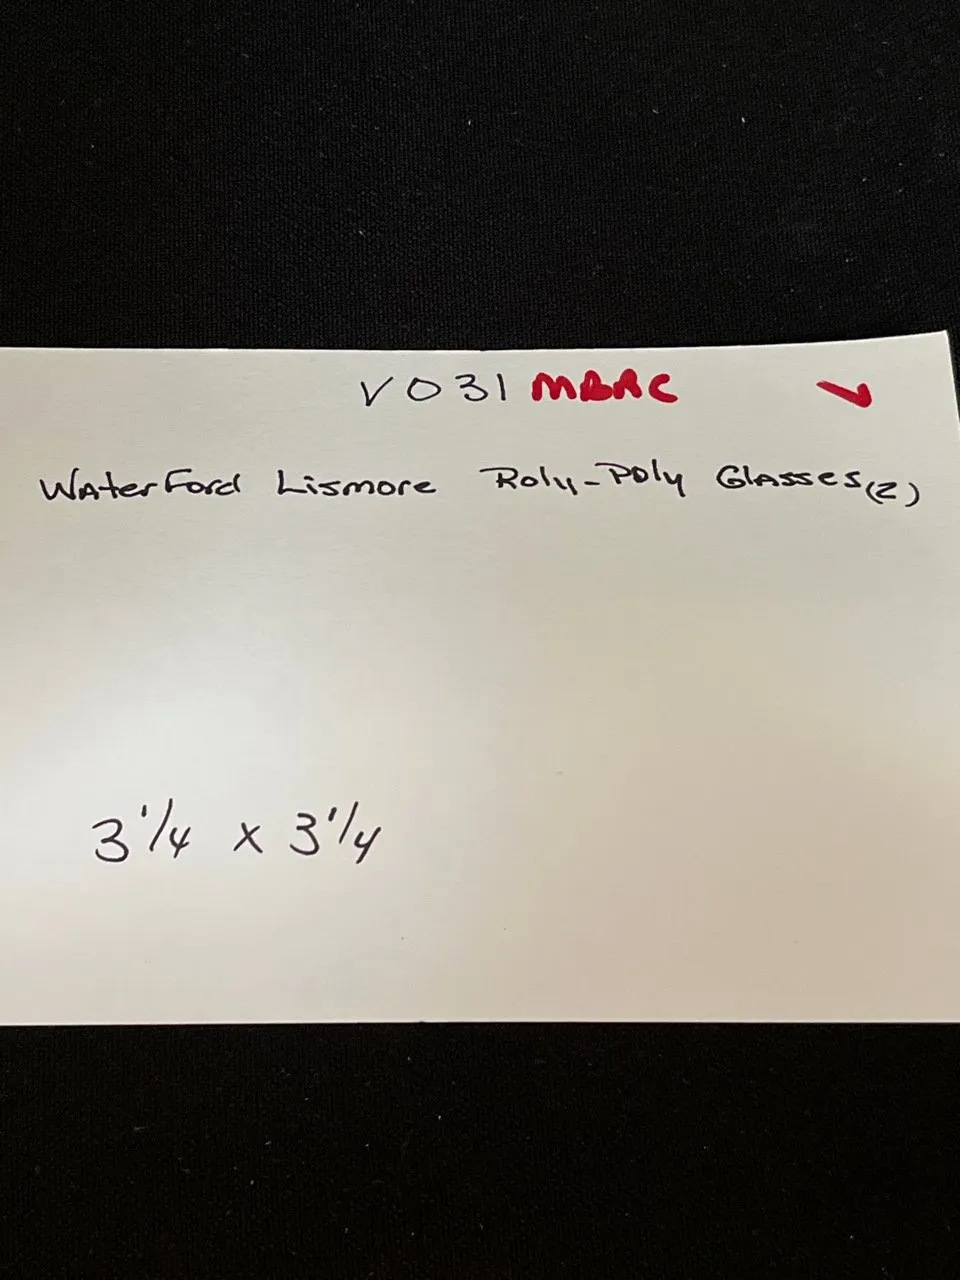 V031 MBRC ✓
Waterford Lismore Roly-Poly Glasses (2)
3 1/4 x 3 1/4